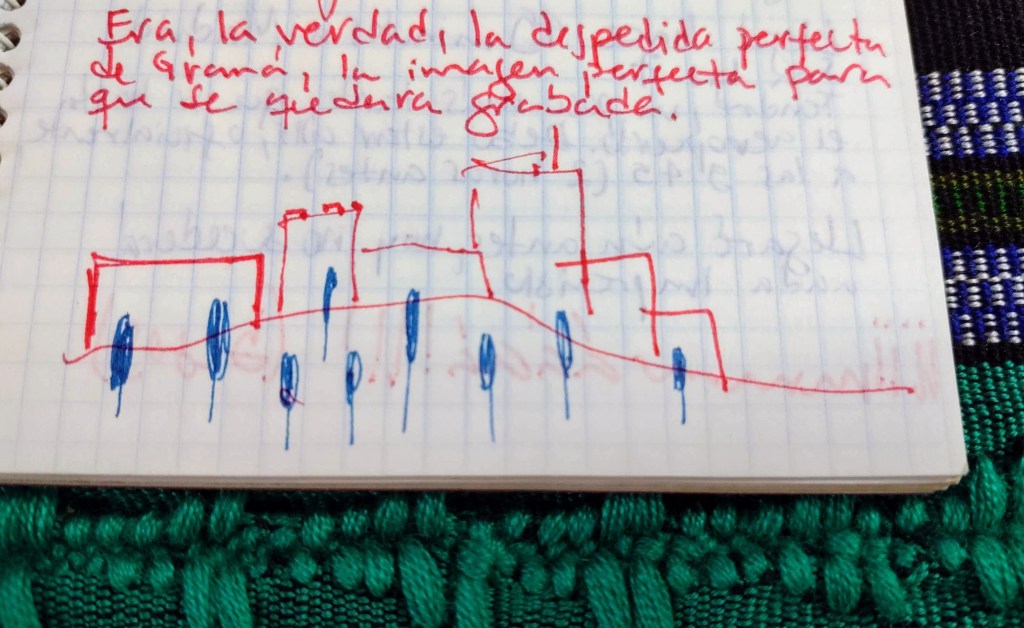 Era, la verdad, la despedida perfecta
de Graná, la imagen perfecta para
que se quedara grabada.